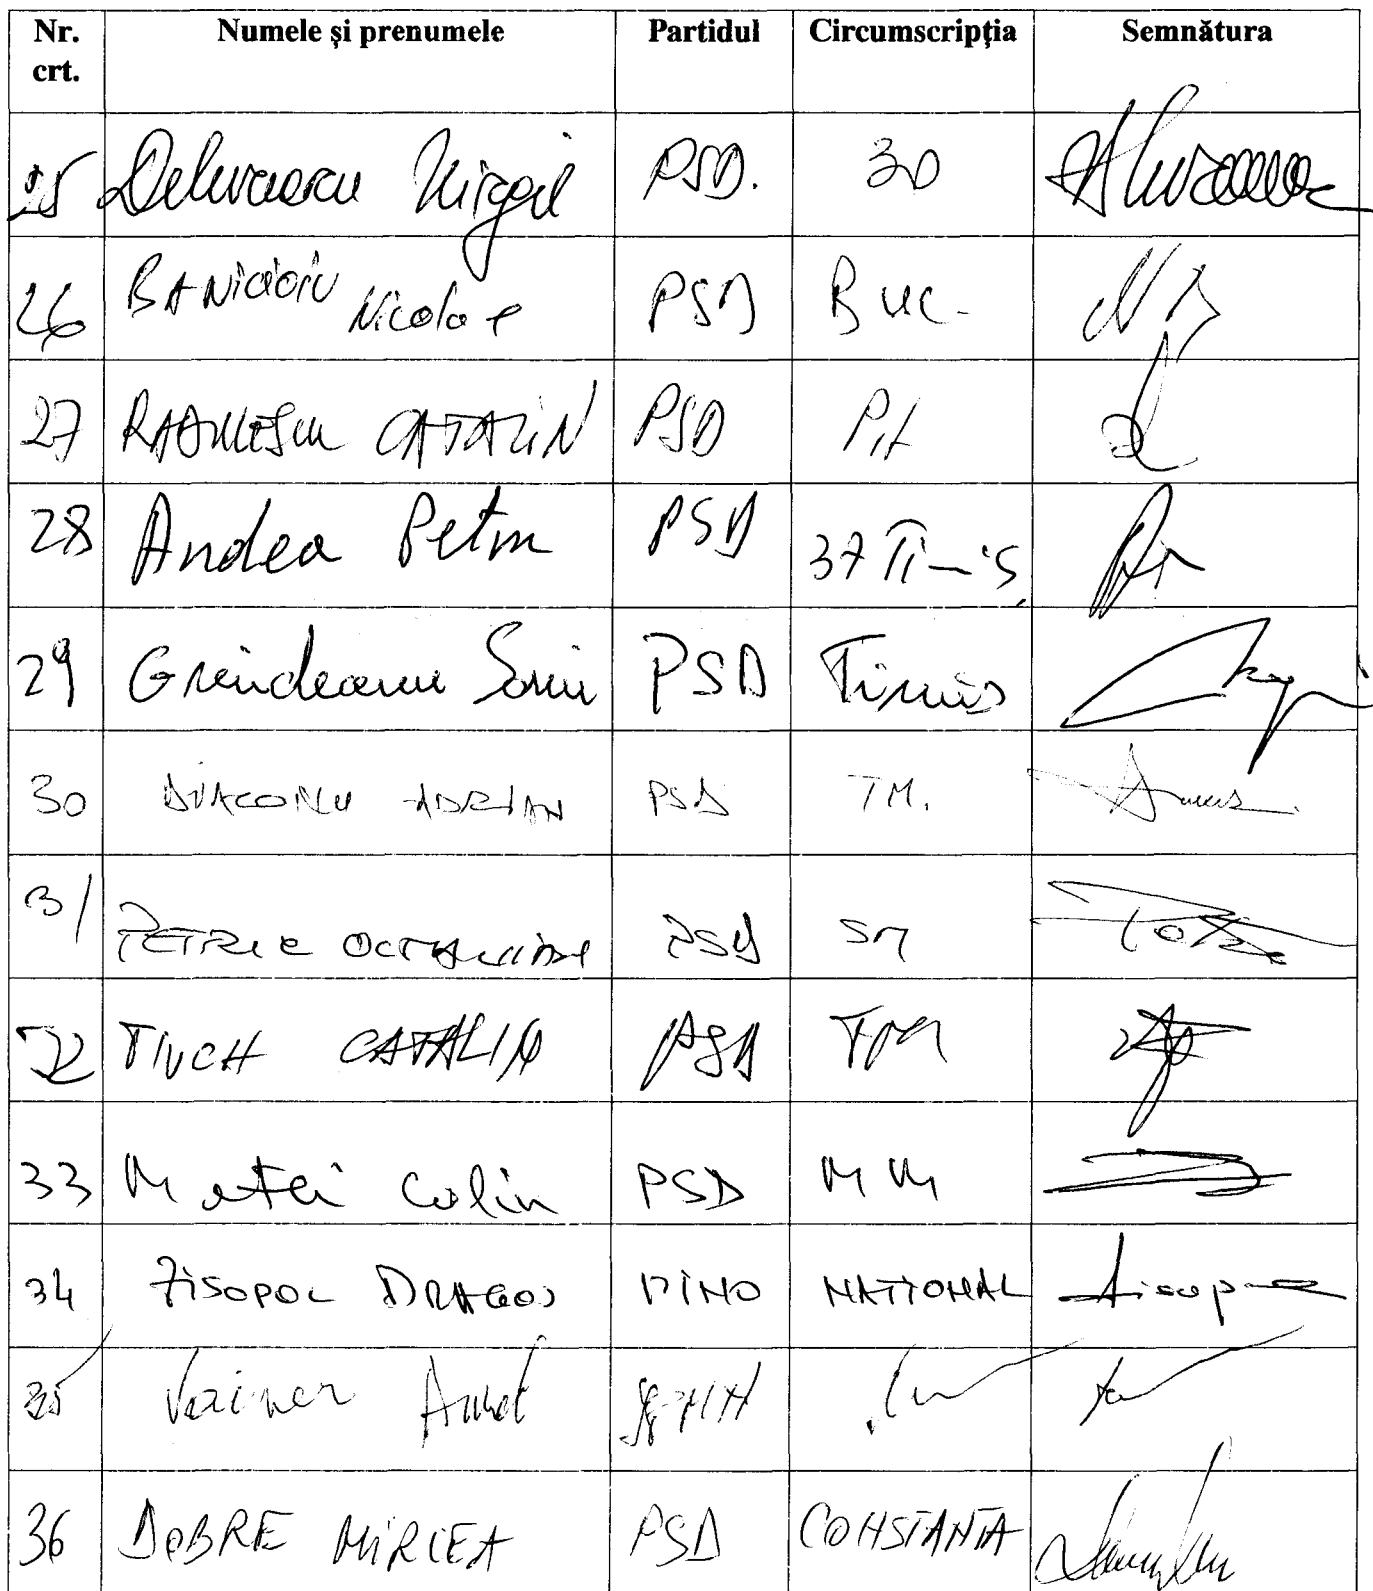 Nr. crt. Numele și prenumele Partidul Circumscripția Semnătura
25 Delureanu Virgil PSD. 30
26 BANicioiu Nicolae PSD Buc.
27 RADULESCU CATALIN PSD Pit
28 Andea Petru PSD 37 Timiș
29 Grindeanu Sorin PSD Timis
30 DIACONU ADRIAN PSD TM.
31 PETRIC OCTAVIAN PSD SM
32 TIUCH CATALIN PSD TM
33 Matei Calin PSD MM
34 Zisopol DRAGOS MINO NATIONAL
35 Varinca
36 DOBRE MIRCEA PSD CONSTANTA